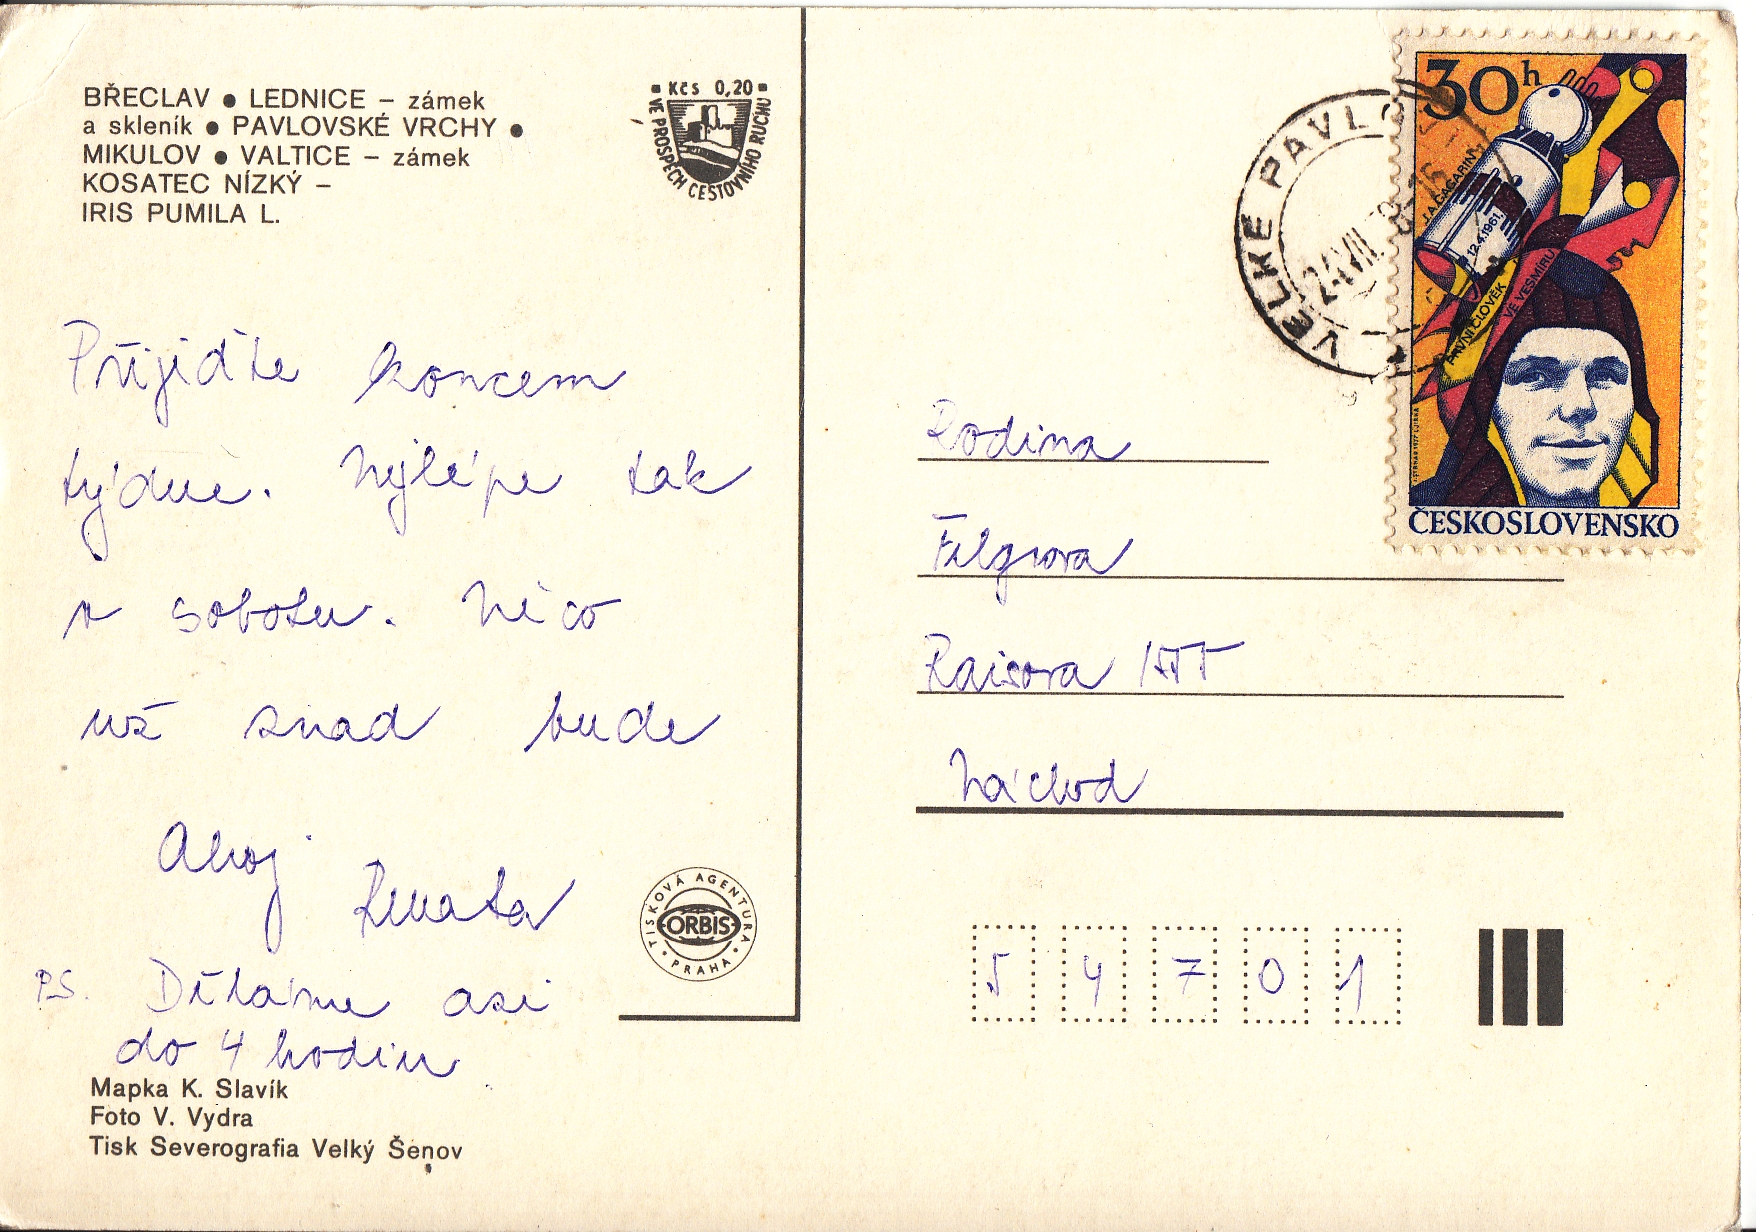 BŘECLAV ● LEDNICE – zámek
a skleník ● PAVLOVSKÉ VRCHY ●
MIKULOV ● VALTICE – zámek
KOSATEC NÍZKÝ –
IRIS PUMILA L.
Kčs 0,20
VE PROSPĚCH CESTOVNÍHO RUCHU
Přijeďte koncem
týdne. Nejlépe tak
v sobotu. Něco
už snad bude
Ahoj
Renata
PS. Děláme asi
do 4 hodin
Mapka K. Slavík
Foto V. Vydra
Tisk Severografia Velký Šenov
TISKOVÁ AGENTURA
ORBIS
PRAHA
VELKÉ PAVLO
24.VII.
30h
J.A.GAGARIN
12.4.1961
PRVNÍ ČLOVĚK
VE VESMÍRU
ČESKOSLOVENSKO
Rodina
Raisova
Náchod
54701